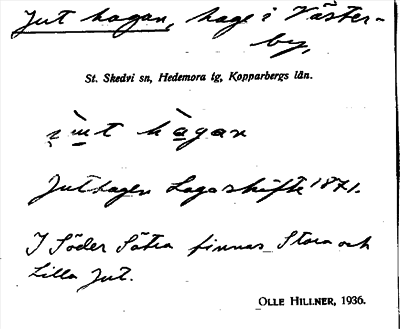 Jut hagan, hage i Väster-
by,
St. Skedvi sn, Hedemora tg, Kopparbergs län.
hàgan
Juthagen Lagaskifte 1871.
I Söder Sätra finnas Stora och
Lilla Jut.
OLLE HILLNER, 1936.